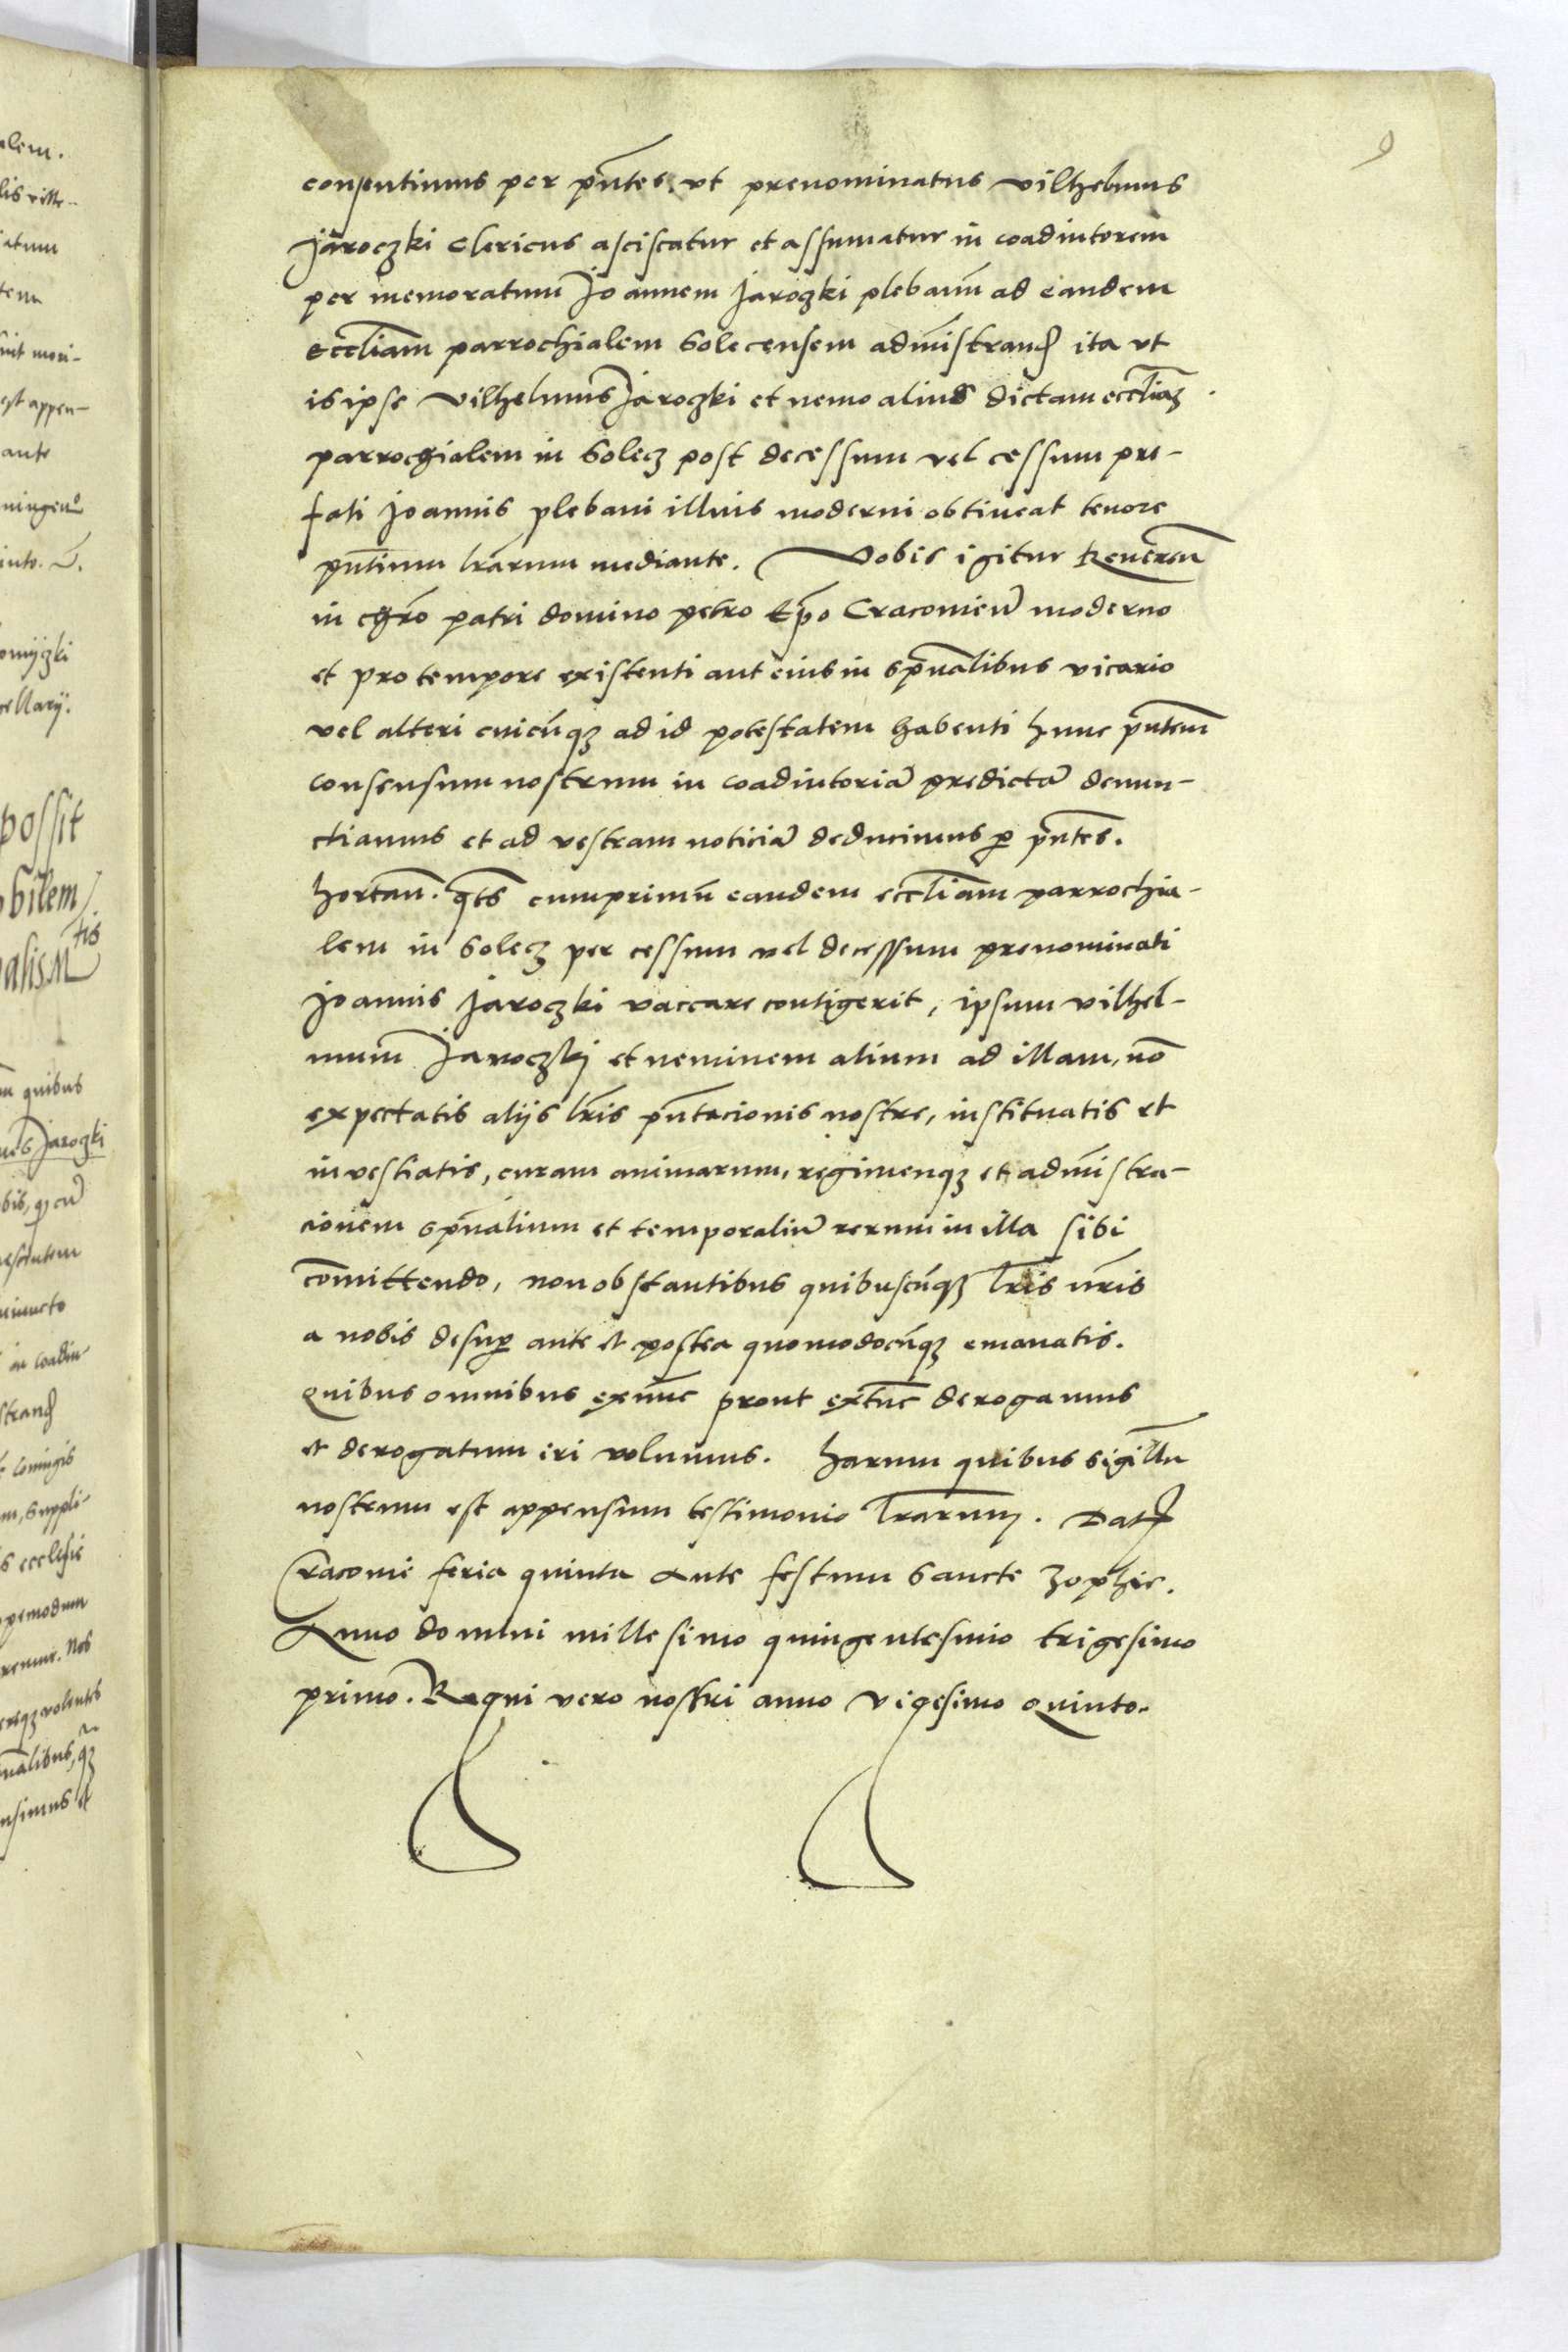 9
consentimus per pñtes, vt prenominatus Vilhelmus
Jaroczki Clericus asciscatur et assumatur in coadiutorem
per memoratum Joannem Jaroczki plebanū ad eandem
eccl̄iam parrochialem Solecensem admīstrand̄ ita vt
is ipse Vilhelmus Jaroczki et nemo alius dictam eccl̄iaȝ
parrochialem in Solecz post decessum vel cessum pre-
fati Joannis plebani illius moderni obtineat tenore
pñtium lr̄arum mediante. Vobis igitur Reveren̄
in chr̄o patri domino petro Ep̄o Cracovien̄ moderno
et pro tempore existenti aut eius in sp̄ualibus vicario
vel alteri cuicūqȝ ad id potestatem habenti hunc pñtem
consensum nostrum in coadiutoriā predictā denun-
ctiamus et ad vestram noticiā deducimus ꝑ pñtes.
hortan̄. qt̄s cumprimū eandem eccl̄iam parrochia-
lem in Solecz per cessum vel decessum prenominati
Joannis Jaroczki vaccare contigerit, ipsum Vilhel-
mum Jaroczkj et neminem alium ad illam, nō
expectatis alijs lr̄is pñtacionis nostre, instituatis et
investiatis, curam animarum, regimenqȝ et admīstra-
cionem sp̄ualium et temporaliū rerum in illa sibi
cōmittendo, non obstantibus quibuscūqȝ lr̄is nr̄is
a nobis desuꝑ ante et postea quomodocūqȝ emanatis.
Quibus omnibus exnūc prout extūc derogamus
et derogatum iri volumus. Harum quibus sigillū
nostrum est appensum testimonio lr̄arum. Dat
Cracovie feria quinta Ante festum Sancte Zophie.
Anno domini millesimo quingentesimo trigesimo
primo. Regni vero nostri anno vigesimo Quinto.
alem.
ante
possit
bilem
quibus
Jaroczki